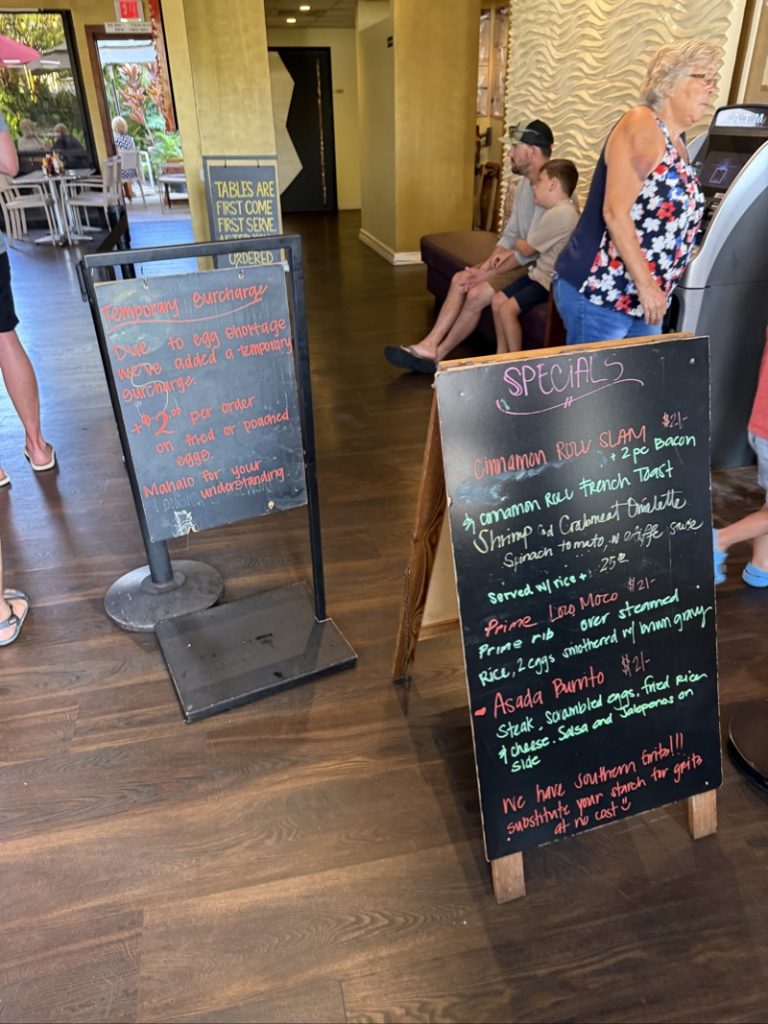 EXIT
TABLES ARE
FIRST COME
FIRST SERVE
ORDERED
ATM
Temporary Surcharge
Due to egg shortage
we've added a temporary
surcharge.
+$2.00 per order
on fried or poached
eggs.
Mahalo for your
understanding.
SPECIALS
- Cinnamon Roll SLAM $21-
+ 2 pc Bacon
& cinnamon Roll French Toast
Shrimp and Crabmeat Omelette
Spinach tomato, w/ sauce
Served w/ rice + 25
Prime Loco Moco $21-
Prime rib over steamed
Rice, 2 eggs smothered w/ brown gravy
- Asada Burrito $21-
Steak, scrambled eggs, fried Rice
& cheese. Salsa and Jalapenos on
side
We have Southern Grits!!!
substitute your starch for grits
at no cost